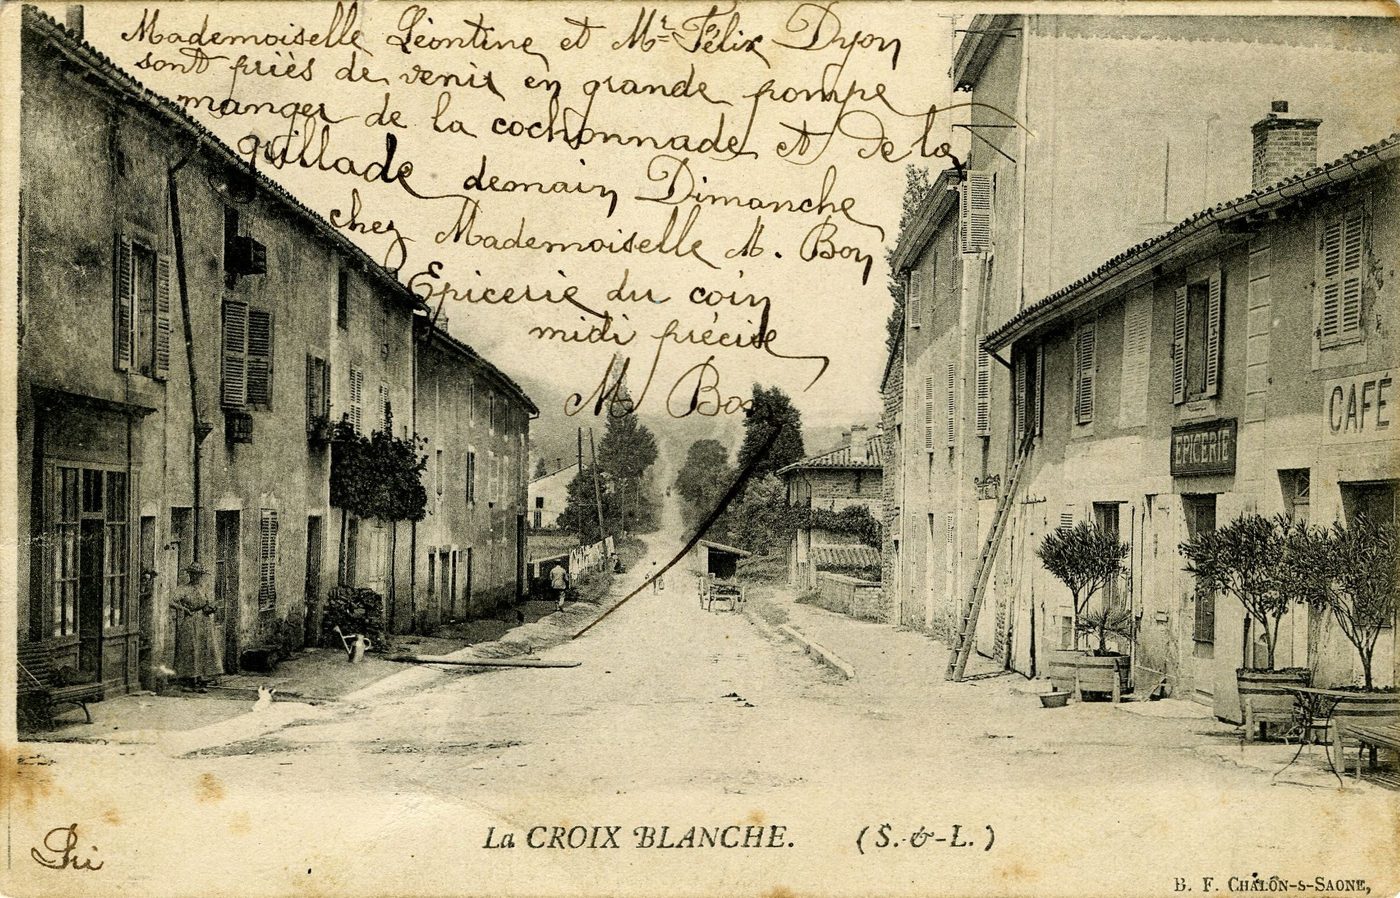 Mademoiselle Léontine et Mr Félix Dyon
sont priés de venir en grande pompe
manger de la cochonnade et de la
grillade demain Dimanche
chez Mademoiselle M. Bon
Epicerie du coin
midi précise
M Bon
CAFÉ
EPICERIE
La CROIX BLANCHE. (S.-&-L.)
B. F. CHALON-s-SAONE,